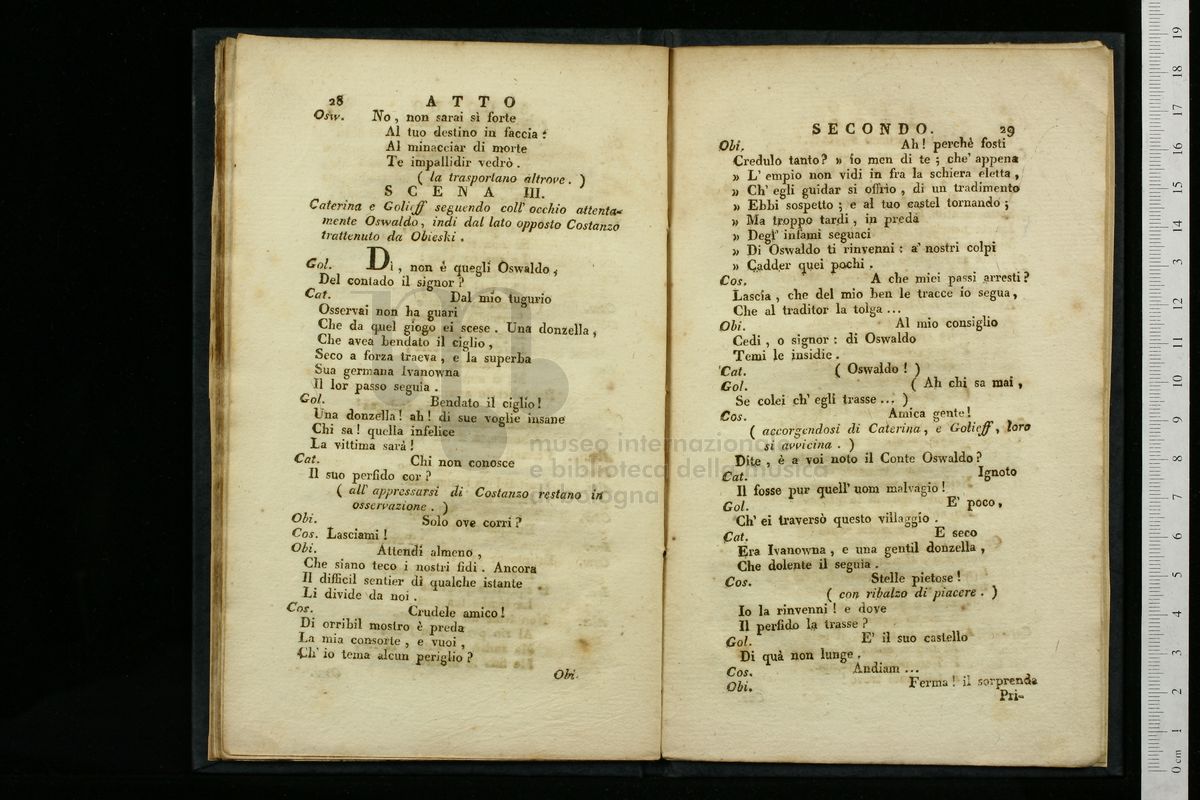 28 ATTO
Osw. No, non sarai sì forte
Al tuo destino in faccia:
Al minacciar di morte
Te impallidir vedrò.
( la trasportano altrove. )
SCENA III.
Caterina e Golieff seguendo coll' occhio attenta-
mente Oswaldo, indi dal lato opposto Costanzo
trattenuto da Obieski.
Gol. Dì, non è quegli Oswaldo,
Del contado il signor?
Cat. Dal mio tugurio
Osservai non ha guari
Che da quel giogo ei scese. Una donzella,
Che avea bendato il ciglio,
Seco a forza traeva, e la superba
Sua germana Ivanowna
Il lor passo seguia.
Gol. Bendato il ciglio!
Una donzella! ah! di sue voglie insane
Chi sa! quella infelice
La vittima sarà!
Cat. Chi non conosce
Il suo perfido cor?
( all' appressarsi di Costanzo restano in
osservazione. )
Obi. Solo ove corri?
Cos. Lasciami!
Obi. Attendi almeno,
Che siano teco i nostri fidi. Ancora
Il difficil sentier di qualche istante
Li divide da noi.
Cos. Crudele amico!
Di orribil mostro è preda
La mia consorte, e vuoi,
Ch' io tema alcun periglio?
Obi.
SECONDO. 29
Obi. Ah! perchè fosti
Credulo tanto? » io men di te; che' appena
» L' empio non vidi in fra la schiera eletta,
» Ch' egli guidar si offrìo, di un tradimento
» Ebbi sospetto; e al tuo castel tornando;
» Ma troppo tardi, in preda
» Degl' infami seguaci
» Di Oswaldo ti rinvenni: a' nostri colpi
» Cadder quei pochi.
Cos. A che miei passi arresti?
Lascia, che del mio ben le tracce io segua,
Che al traditor la tolga ...
Obi. Al mio consiglio
Cedi, o signor: di Oswaldo
Temi le insidie.
Cat. ( Oswaldo! )
Gol. ( Ah chi sa mai,
Se colei ch' egli trasse ... )
Cos. Amica gente!
( accorgendosi di Caterina, e Golieff, loro
si avvicina. )
Dite, è a voi noto il Conte Oswaldo?
Cat. Ignoto
Il fosse pur quell' uom malvagio!
Gol. E' poco,
Ch' ei traversò questo villaggio.
Cat. E seco
Era Ivanowna, e una gentil donzella,
Che dolente il seguia.
Cos. Stelle pietose!
( con ribalzo di piacere. )
Io la rinvenni! e dove
Il perfido la trasse?
Gol. E' il suo castello
Di quà non lunge.
Cos. Andiam ...
Obi. Ferma! il sorprenda
Pri-
museo internazionale
e biblioteca della musica
di bologna
0 cm 1 2 3 4 5 6 7 8 9 10 11 12 13 14 15 16 17 18 19